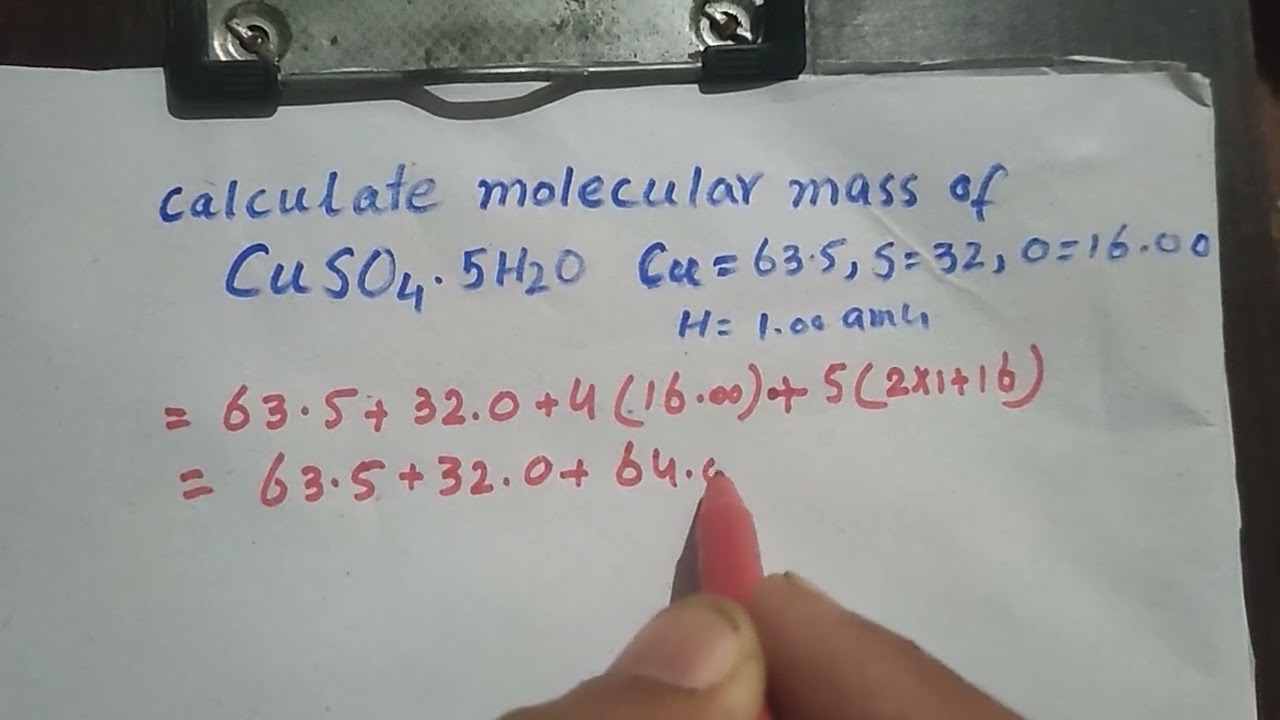 calculate molecular mass of
CuSO4.5H2O Cu = 63.5, S = 32, O = 16.00
H = 1.00 amu
= 63.5 + 32.0 + 4 (16.00) + 5 (2x1+16)
= 63.5 + 32.0 + 64.0